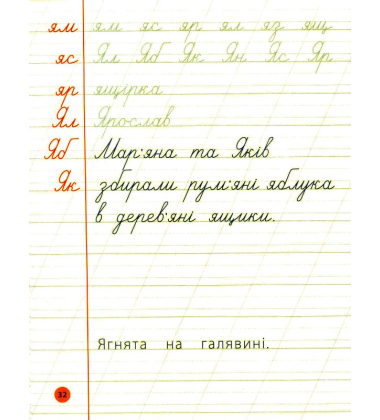 ям ям яс яр ял яз ящ
яс Ял Яб Як Ян Яс Яр
яр ящірка
Ял Ярослав
Яб Мар'яна та Яків
Як збирали рум'яні яблука
в дерев'яні ящики.
Ягнята на галявині.
32